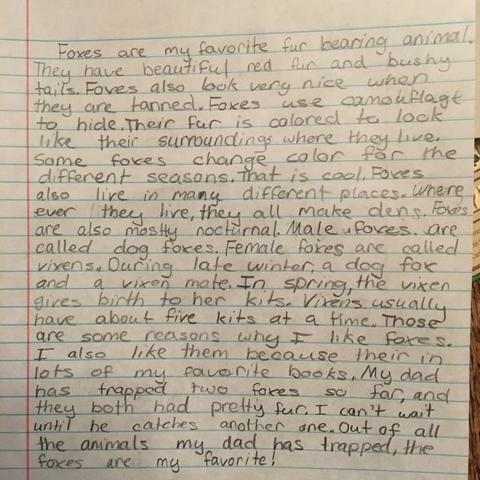 Foxes are my favorite fur bearing animal.
They have beautiful red fur and bushy
tails. Foxes also look very nice when
they are tanned. Foxes use camouflage
to hide. Their fur is colored to look
like their surroundings where they live.
Some foxes change color for the
different seasons. That is cool. Foxes
also live in many different places. Where
ever they live, they all make dens. Foxes
are also mostly nocturnal. Male foxes are
called dog foxes. Female foxes are called
vixens. During late winter, a dog fox
and a vixen mate. In spring, the vixen
gives birth to her kits. Vixens usually
have about five kits at a time. Those
are some reasons why I like foxes.
I also like them because their in
lots of my favorite books. My dad
has trapped two foxes so far, and
they both had pretty fur. I can't wait
until he catches another one. Out of all
the animals my dad has trapped, the
foxes are my favorite!